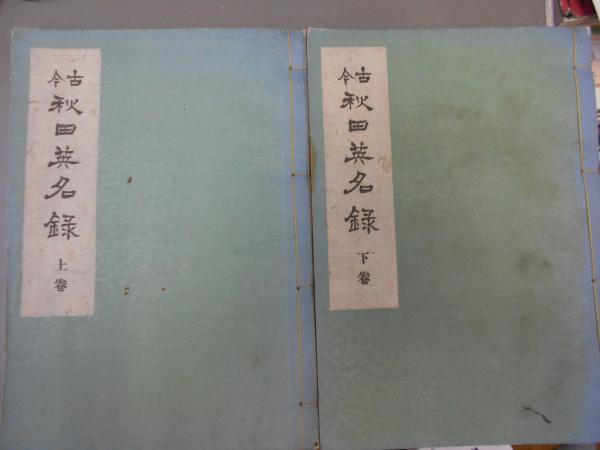 古今
秋田英名録
上巻
古今
秋田英名録
下巻